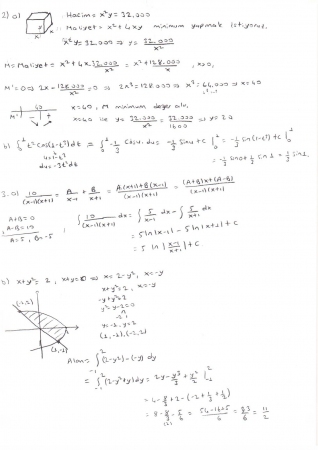 2) a) Hacim = x²y = 32,000
Maliyet = x² + 4xy minimum yapmak istiyoruz.
x²y = 32.000 ⇒ y = 32.000/x²
M = Maliyet = x² + 4x.32.000/x² = x² + 128.000/x, x>0,
M' = 0 ⇒ 2x - 128.000/x² = 0 ⇒ 2x³ = 128.000 ⇒ x³ = 64.000 ⇒ x = 40
40
M' - +
x = 40, M minimum değer alır.
x = 40 ise y = 32.000/x² = 32.000/1600 ⇒ y = 20
b) ∫ t² cos(1-t³) dt = ∫ -1/3 cos u du = -1/3 sin u + C = -1/3 sin(1-t³)
u = 1-t³
du = -3t² dt
= -1/3 sin 0 + 1/3 sin 1 = 1/3 sin 1.
3. a) 10/(x-1)(x+1) = A/x-1 + B/x+1 = A(x+1)+B(x-1)/(x-1)(x+1) = (A+B)x+(A-B)/(x-1)(x+1)
A+B=0
A-B=10
A=5, B=-5
∫ 10/(x-1)(x+1) dx = ∫ 5/x-1 dx - ∫ 5/x+1 dx
= 5 ln|x-1| - 5 ln|x+1| + C
= 5 ln |x-1/x+1| + C
b) x+y² = 2, x+y=0 ⇒ x = 2-y², x=-y
x+y²=2, x=-y
-y+y²=2
y²-y-2=0
-2 1
y=-1, y=2
(1,-1), (-2,2)
(-2,2)
(1,-1)
Alan = ∫ (2-y²) - (-y) dy
= ∫ (2-y²+y) dy = 2y - y³/3 + y²/2
= 4 - 8/3 + 2 - (-2 + 1/3 + 1/2)